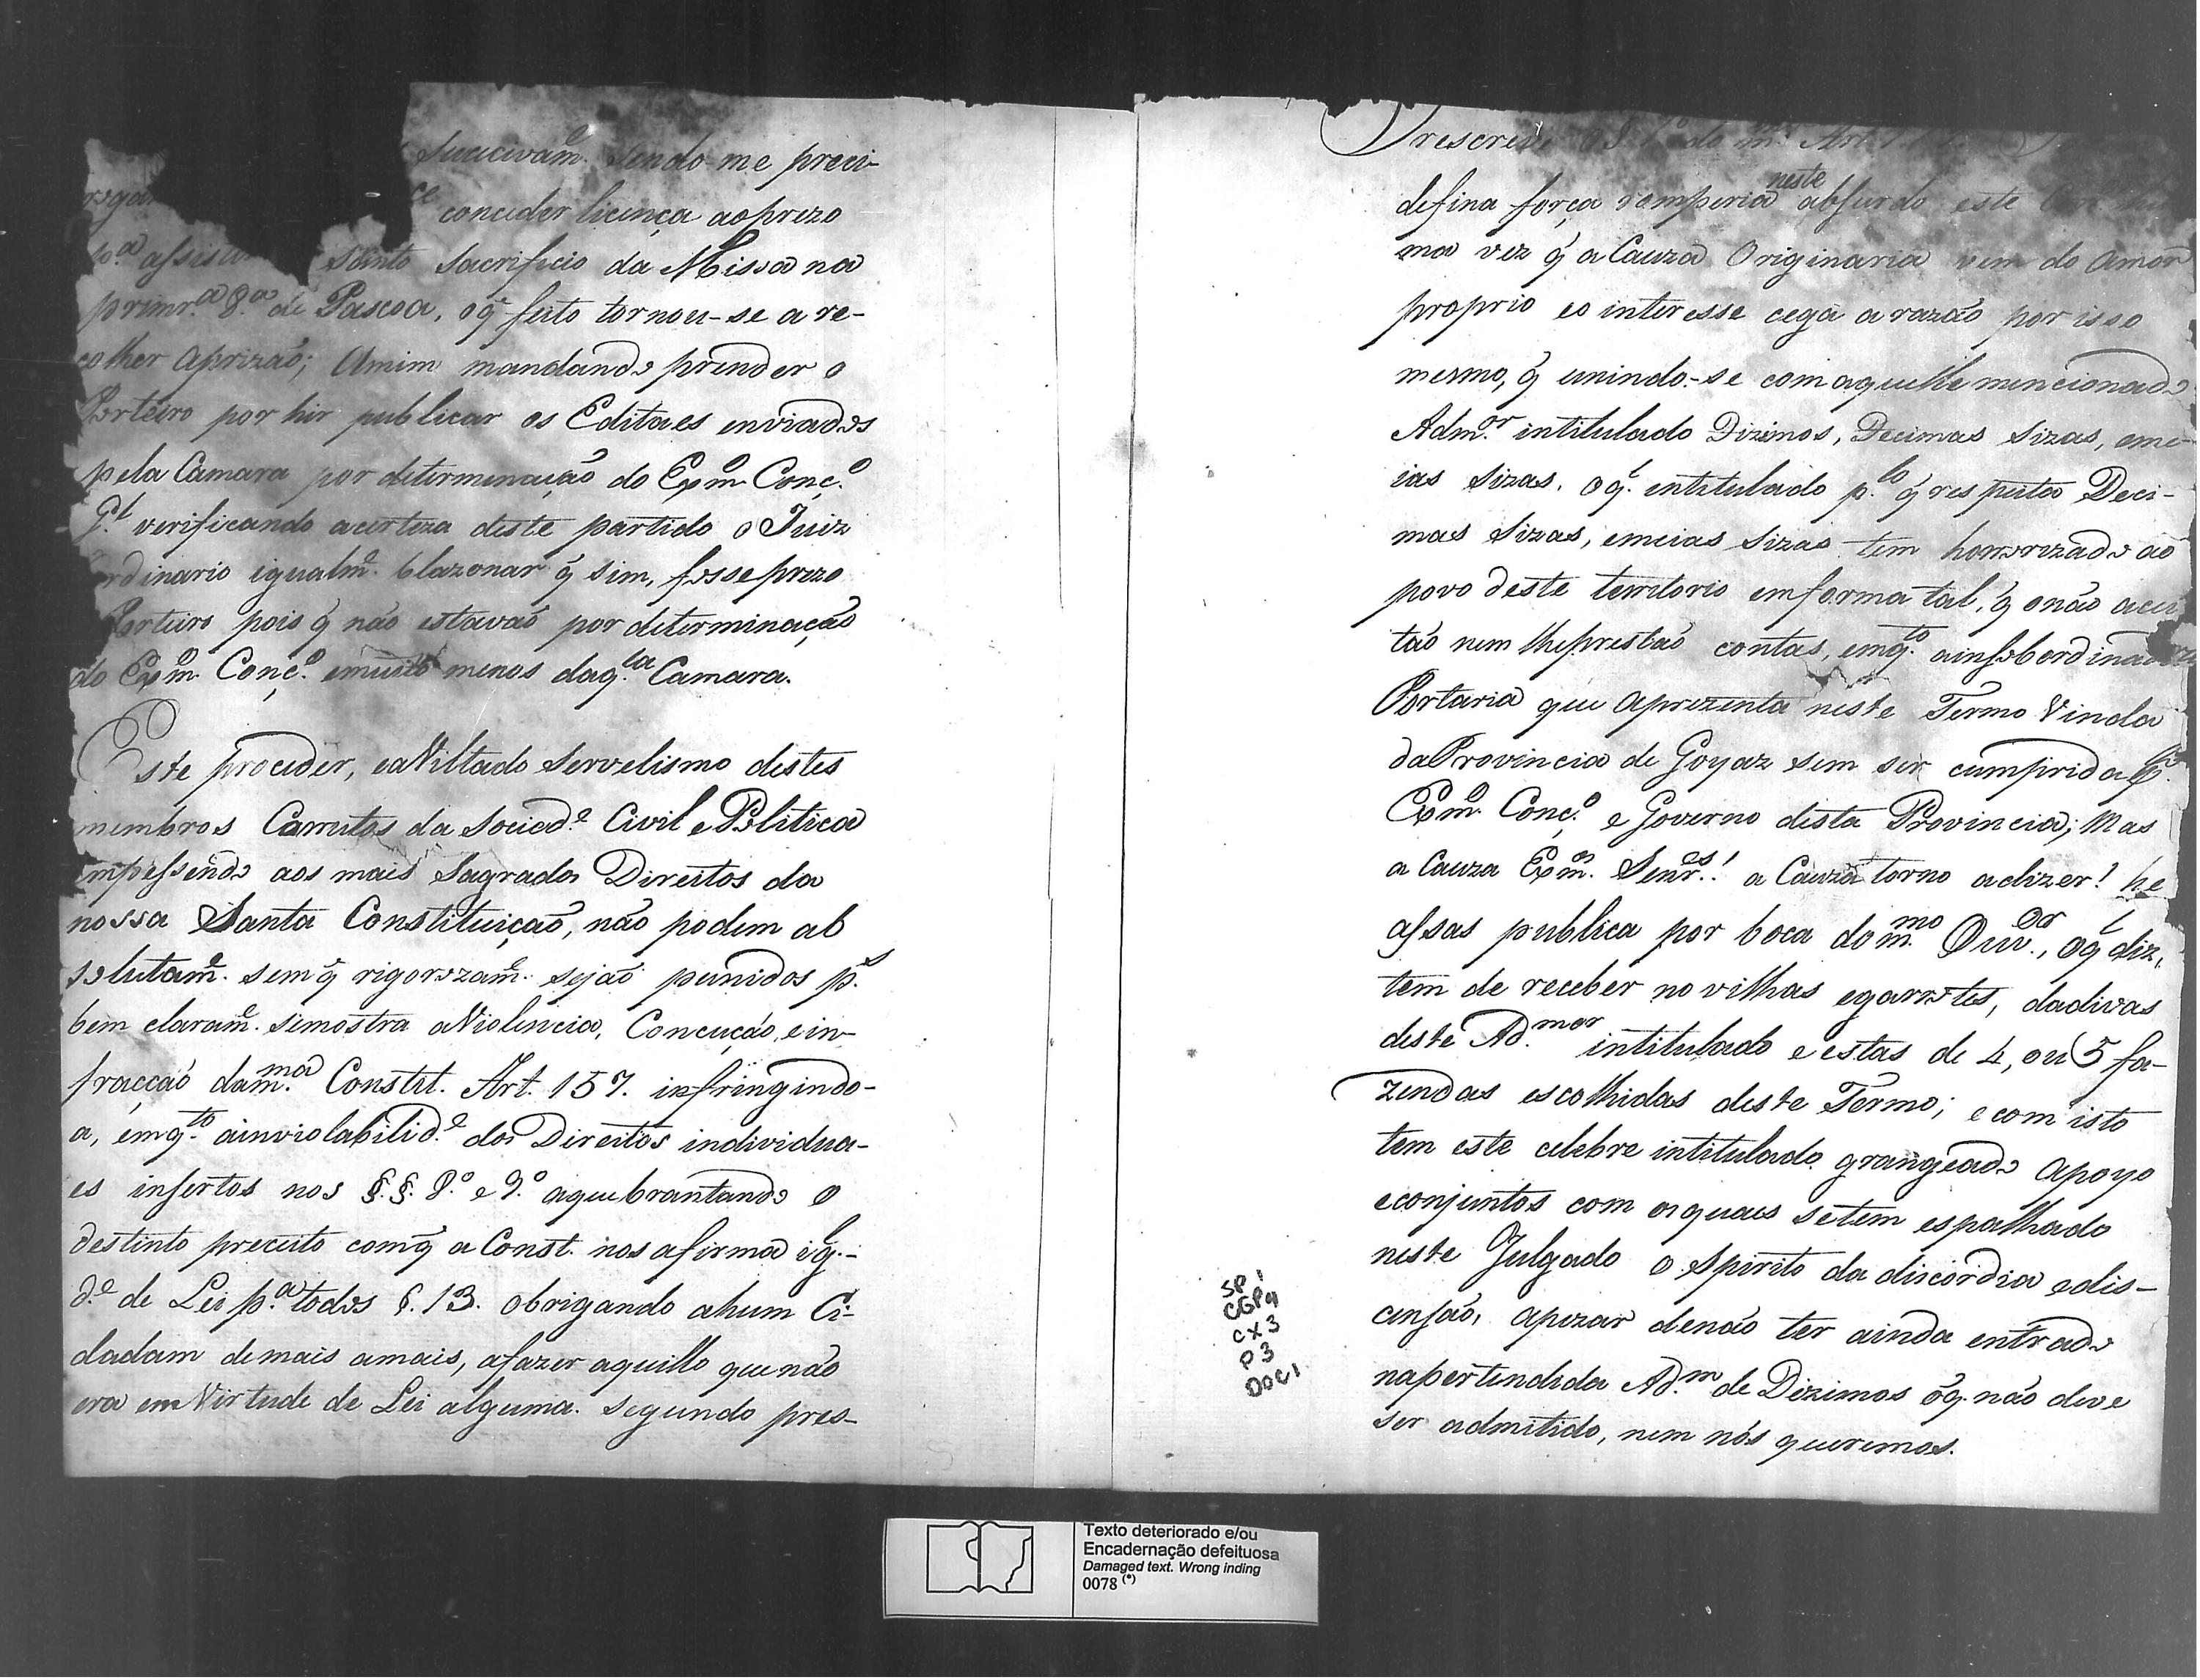 sucecivam.e sendo-me preci-
conceder licença ao prezo
p.a assistir Santo Sacrificio da Missa na
primr.a 8.a de Pascoa, o q̃ feito tornou-se a re-
colher aprizão; Amim mandando prender o
Porteiro por hir publicar os Editaes enviados
pela Camara por determenação do Exm.o Conc.o
G.l verificando acerteza deste partido o Juiz
ordinario igualm.e blazonar q̃ sim, fosse prezo
Porteiro pois q̃ não estavaõ por determinação
do Exm.o Conç.o emuito menos daq.la Camara.
Este proceder, eaViltado Servelismo destes
membros Corrutos da Socied.e Civil e Politica
empessendo aos mais Sagrados Direitos da
nossa Santa Constituição, não podem ab
solutam.e sem q̃ rigorozam.e sejão punidos p.s
bem claram.e semostra aViolencia, Concução, ein-
fracção dam.ma Constit. Art. 157. infringindo-
a, emq.to ainviolabilid.e dos Direitos individua-
es insertos nos §.§. 8.o e 9.o aquebrantando o
destinto preceito comq̃ a Const. nos afirma ig.l-
d.e de Lei p.a todos §. 13. obrigando ahum Ci-
dadam demais amais, afazer aquillo que não
era em Virtude de Lei alguma. Segundo pres-
Prescreve o § 1.o do m.mo Art.
defina força romperia neste absurdo este
ma vez q̃ a Cauza Originaria vem do amor
proprio eo interesse cega arazão por isso
mesmo, q̃ unindo-se com aquelle mencionado
Adm.or intitulado Dizimos, Decimas Sizas, eme-
ias Sizas. Oq.l intitulado p.lo q̃ respeita Deci-
mas Sizas, emeias Sizas tem horrorizado ao
povo deste territorio emforma tal, q̃ onão acei
tão nem lheprestão contas, emq.to
Portaria que aprezenta neste Termo Vinda
daProvincia de Goyaz sem ser cumprida p.lo
Exm.o Conç.o e Governo desta Provincia; Mas
a Cauza Exm.os Senr.es! a Cauza torno adizer! he
assas publica por boca dom.mo Ouv.or, oq.l diz,
tem de receber novilhas egarrotes, dadivas
deste Ad.mor intitulado e estas de 4, ou 5 fa-
zendas escolhidas deste Termo; ecom isto
tem este celebre intitulado grangeado apoyo
econjuntos com osquaes setem espalhado
neste Julgado o Spirito da discordia edis-
censão, apezar denão ter ainda entrado
napertendida Ad.m de Dizimos oq̃ não deve
ser admitido, nem nós queremos.
SP 1
CGP9
CX3
P3
DOC1
Texto deteriorado e/ou
Encadernação defeituosa
Damaged text. Wrong inding
0078 (*)